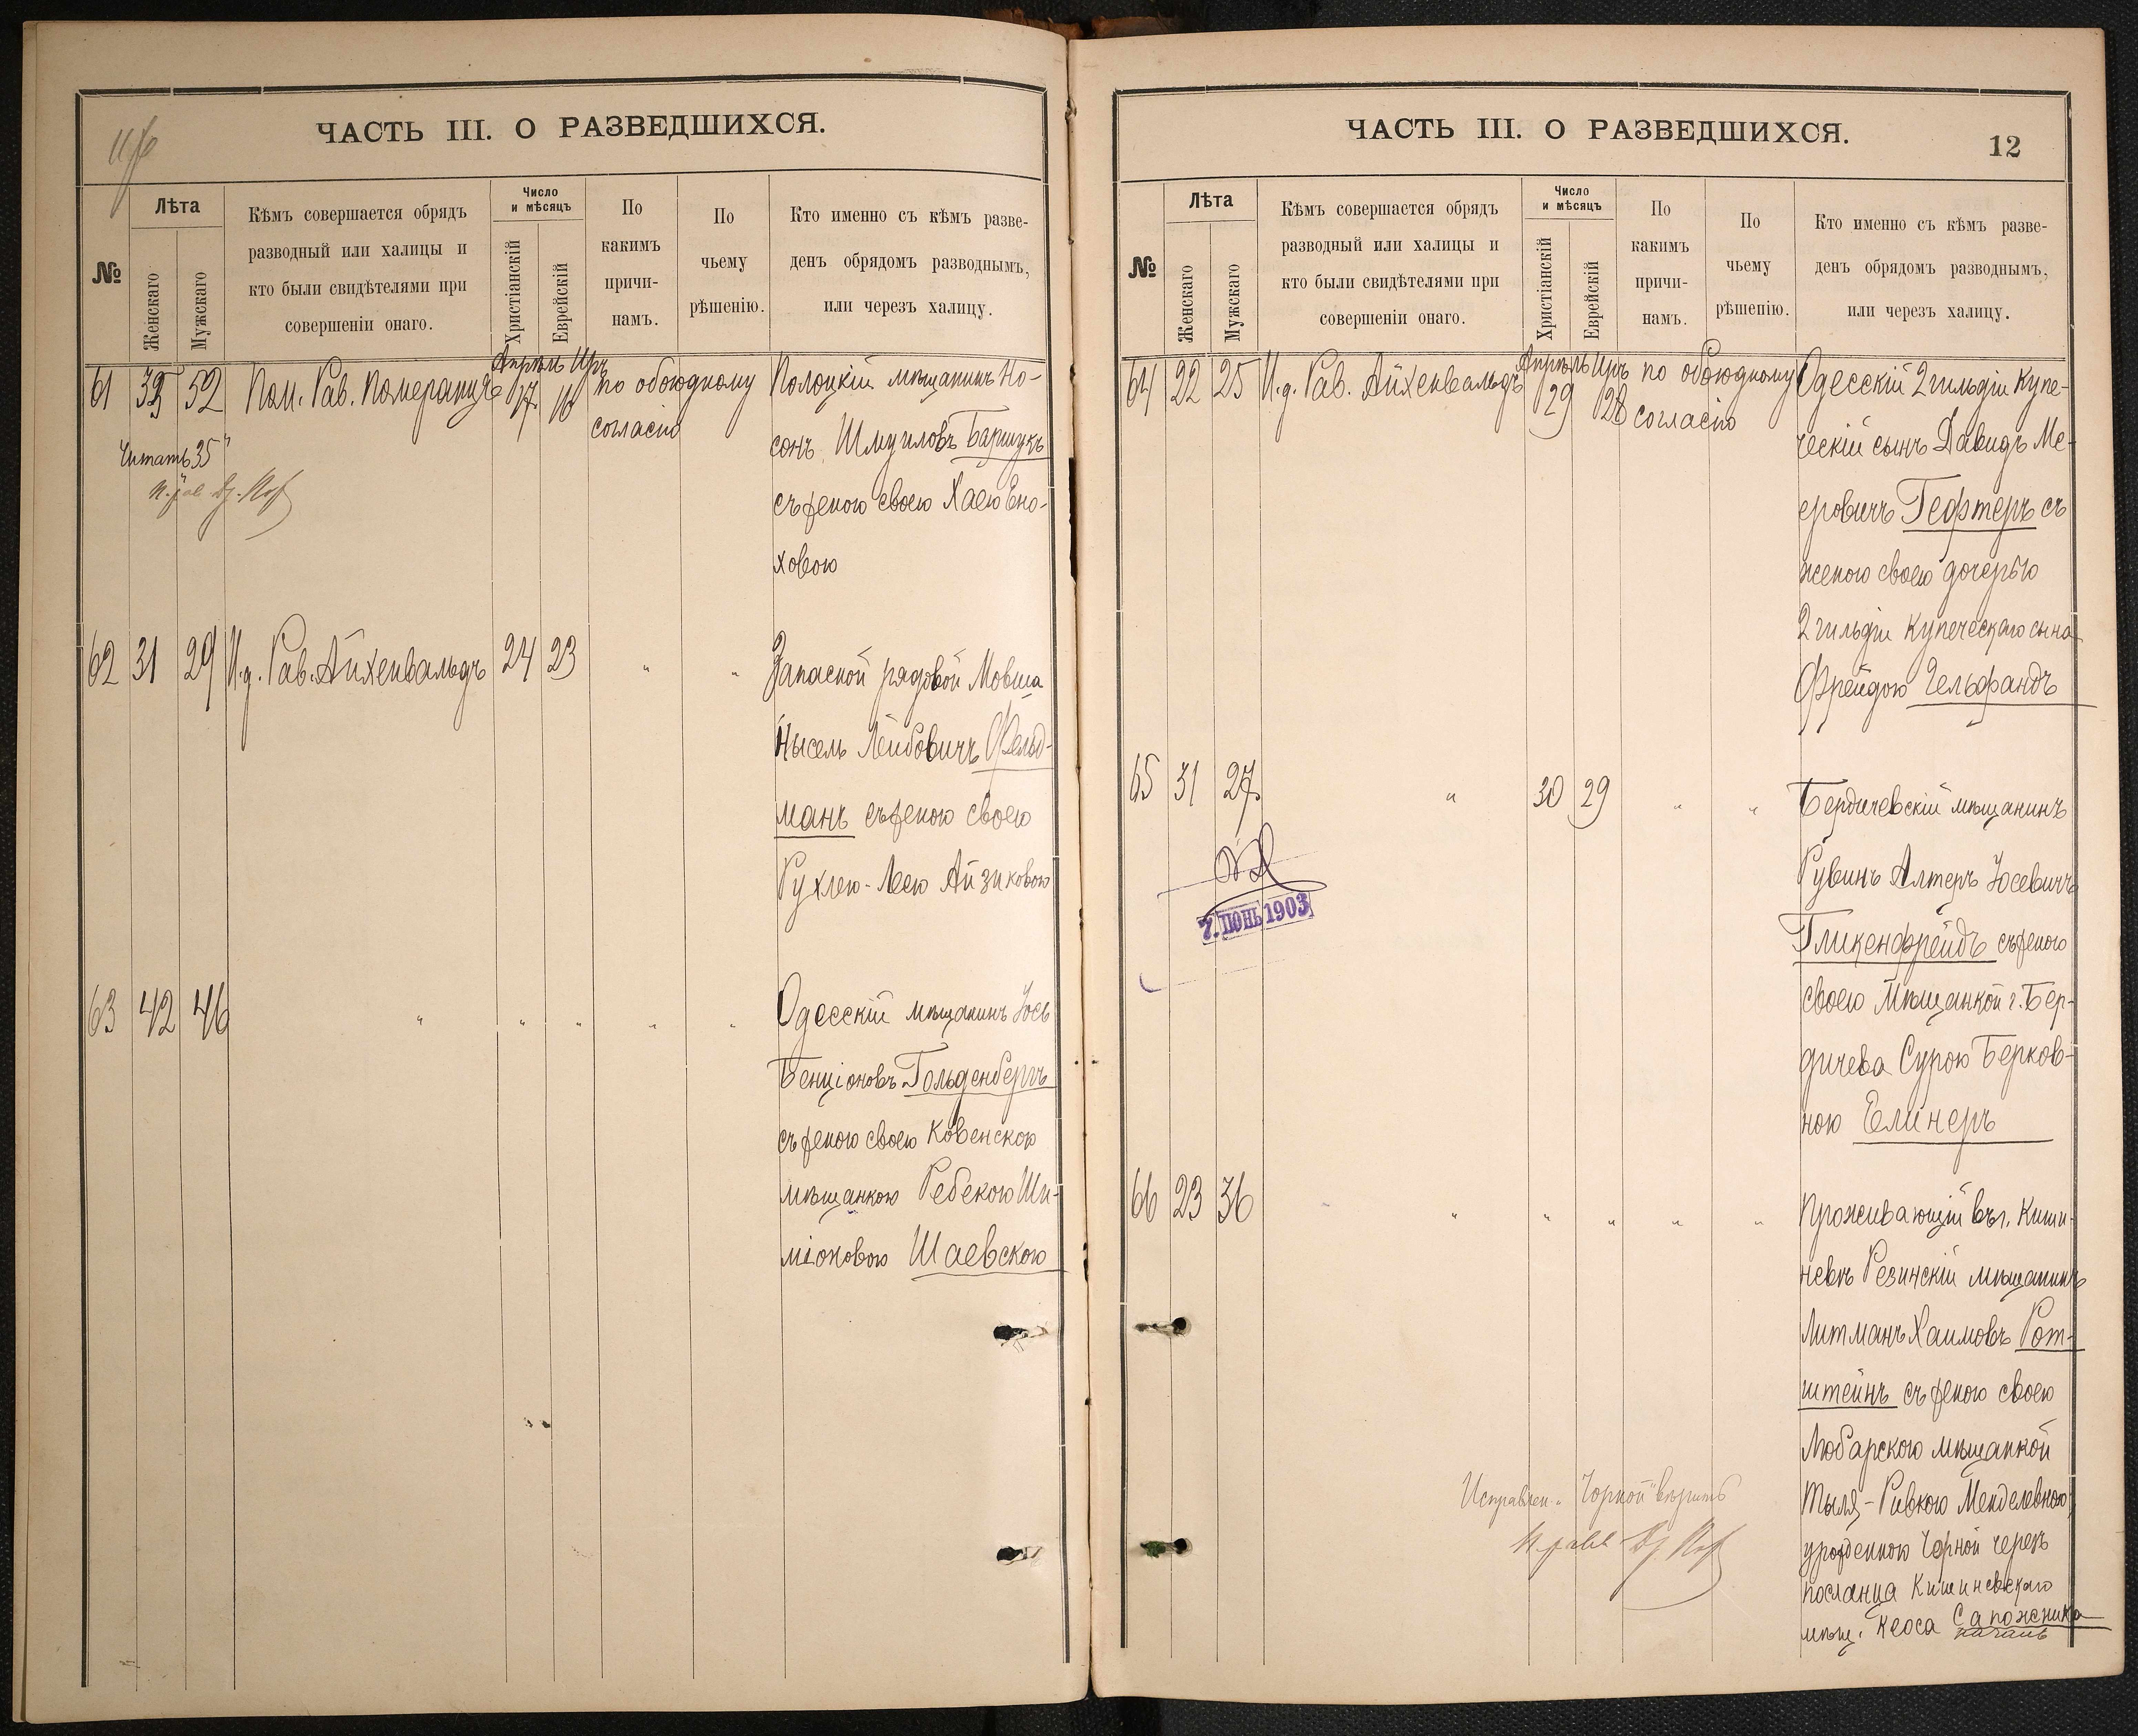 ЧАСТЬ III. О РАЗВЕДШИХСЯ.
№
Лѣта
Женскаго
Мужскаго
Кѣмъ совершается обрядъ
разводный или халицы и
кто были свидѣтелями при
совершеніи онаго.
Число
и мѣсяцъ
Христіанскій
Еврейскій
По
какимъ
причи-
намъ.
По
чьему
рѣшенію.
Кто именно съ кѣмъ разве-
денъ обрядомъ разводнымъ,
или черезъ халицу.
Апрѣль Иръ
61 35 52 Пом. Рав. Померанцъ 17 16 по обоюдному
согласію
Полоцкій мѣщанинъ Но-
сонъ Шмуиловъ Баршукъ
съ женою своею Хаею Ено-
ховою
Читать „35“
62 31 29 И.д. Рав. Айхенвальдъ 24 23 " "
Запасной рядовой Мовша
Нысель Лейбовичъ Фельд-
манъ съ женою своею
Рухлею-Леею Айзиковою
63 42 46 " " " " "
Одесскій мѣщанинъ Іось
Бенціоновъ Гольденбергъ
съ женою своею Ковенскою
мѣщанкою Ребекою Ши-
міоновою Шаевскою
ЧАСТЬ III. О РАЗВЕДШИХСЯ.
12
№
Лѣта
Женскаго
Мужскаго
Кѣмъ совершается обрядъ
разводный или халицы и
кто были свидѣтелями при
совершеніи онаго.
Число
и мѣсяцъ
Христіанскій
Еврейскій
По
какимъ
причи-
намъ.
По
чьему
рѣшенію.
Кто именно съ кѣмъ разве-
денъ обрядомъ разводнымъ,
или черезъ халицу.
Апрѣль Иръ
64 22 25 И.д. Рав. Айхенвальдъ 29 28 по обоюдному
согласію
Одесскій 2 гильдіи купе-
ческій сынъ Давидъ Ме-
еровичъ Гефтеръ съ
женою своею дочерью
2 гильдіи купеческаго сына
Фрейдою Гельфандъ
65 31 27 " 30 29 " "
Бердичевскій мѣщанинъ
Рувинъ Алтеръ Іосевичъ
Гликенфрейдъ съ женою
своею мѣщанкой г. Бер-
дичева Сурою Берков-
ною Елинеръ
7. ІЮНЬ 1903
66 23 36 " " " " "
Проживающій въ г. Киши-
невѣ Резинскій мѣщанинъ
Литманъ Хаимовъ Рот-
штейнъ съ женою своею
Любарскою мѣщанкой
Тыля-Ривкою Менделевною,
урожденною Чорной черезъ
посланца Кишиневскаго
мѣщ. Кеоса Сапожника
Исправлен. „Чорной“ вѣрить